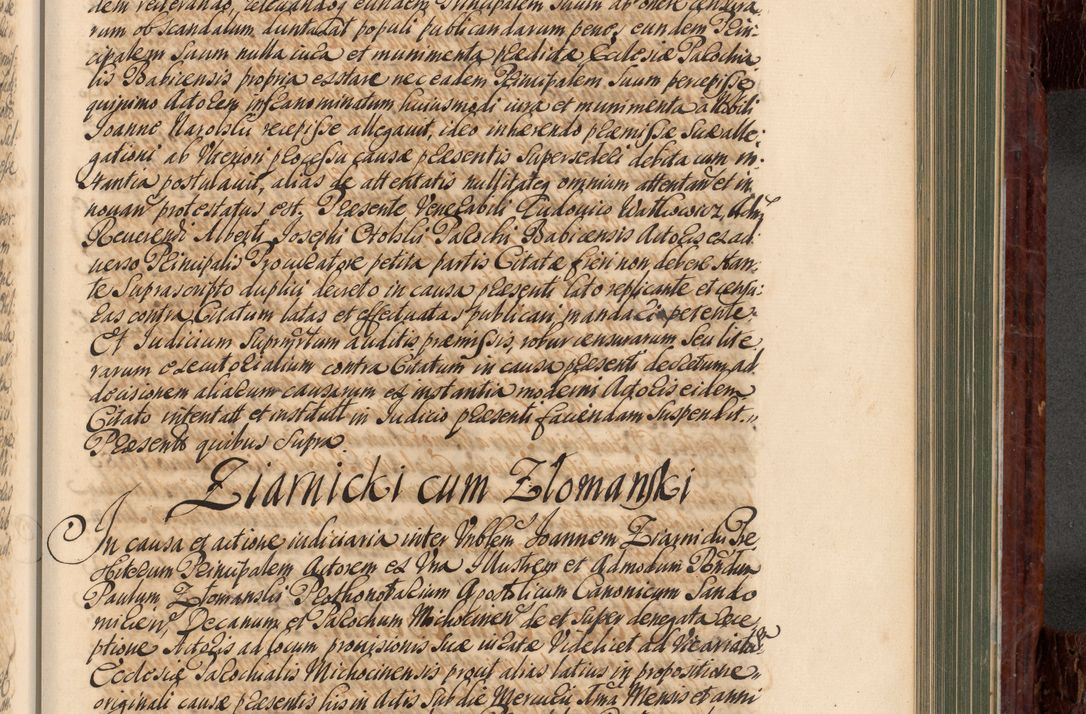 dem referendo, relevando, eundem Principalem Suum ab onere censura
rum ob scandalum duntaxat populi publicandarum pene, eundem Prin
cipalem Suum nulla iura et munimenta prædictæ Ecclesiæ Parochia
lis Babicensis propria exstare nec eadem Principalem Suum percepisse
quinimo Actorem infranominatum huiusmodi iura et munimenta a Nobili
Joanne Narolski recepisse allegavit, ideo inhærendo præmissæ Suæ alle:
gationi ab Ulteriori processu causæ præsentis Supersederi debita cum in:
stantia postulavit, alias de attentatis nullitate omnium attentan et in
novan protestatus est. Præsente Venerabili Ludovico Watkowicz, Adm
Reverendi Alberti Josephi Orolski Parochi Babicensis Actoris ex ad
verso Principalis Procuratore petita partis Citatæ fieri non debere stan:
te Suprascripto duplici decreto in causa præsenti lato replicante et censu:
ras contra Citatum latas et effectuatas publicari mandari petente.
Et Judicium Suprascriptum auditis præmissis, robur censurarum Seu lite
rarum executorialium contra Citatum in causa præsenti decretarum, ad
decisionem aliarum causarum ex instantia moderni Actoris eidem
Citato intentatt et institutt in Judicio præsenti faciendam Suspendit.
Præsentt quibus Supra.
Ziarnicki cum Złomanski
In causa et actione iudiciaria inter Vnblem Joannem Ziarnicki Pre
sbiterum Principalem Actorem ex Una Illustrem et Admodum Rndum
Paulum Złomanski Prothonotarium Apostolicum Canonicum Sando
mirien, Decanum et Parochum Michocinen de et Super denegata rece
ptione Actoris ad locum provisionis Suæ iuratæ Videlicet ad Vicariatum
Ecclesiæ Parochialis Michocinensis prout alias latius in propositione
originali causæ præsentis his in Actis Sub die Mercurii Ima Mensis et anni